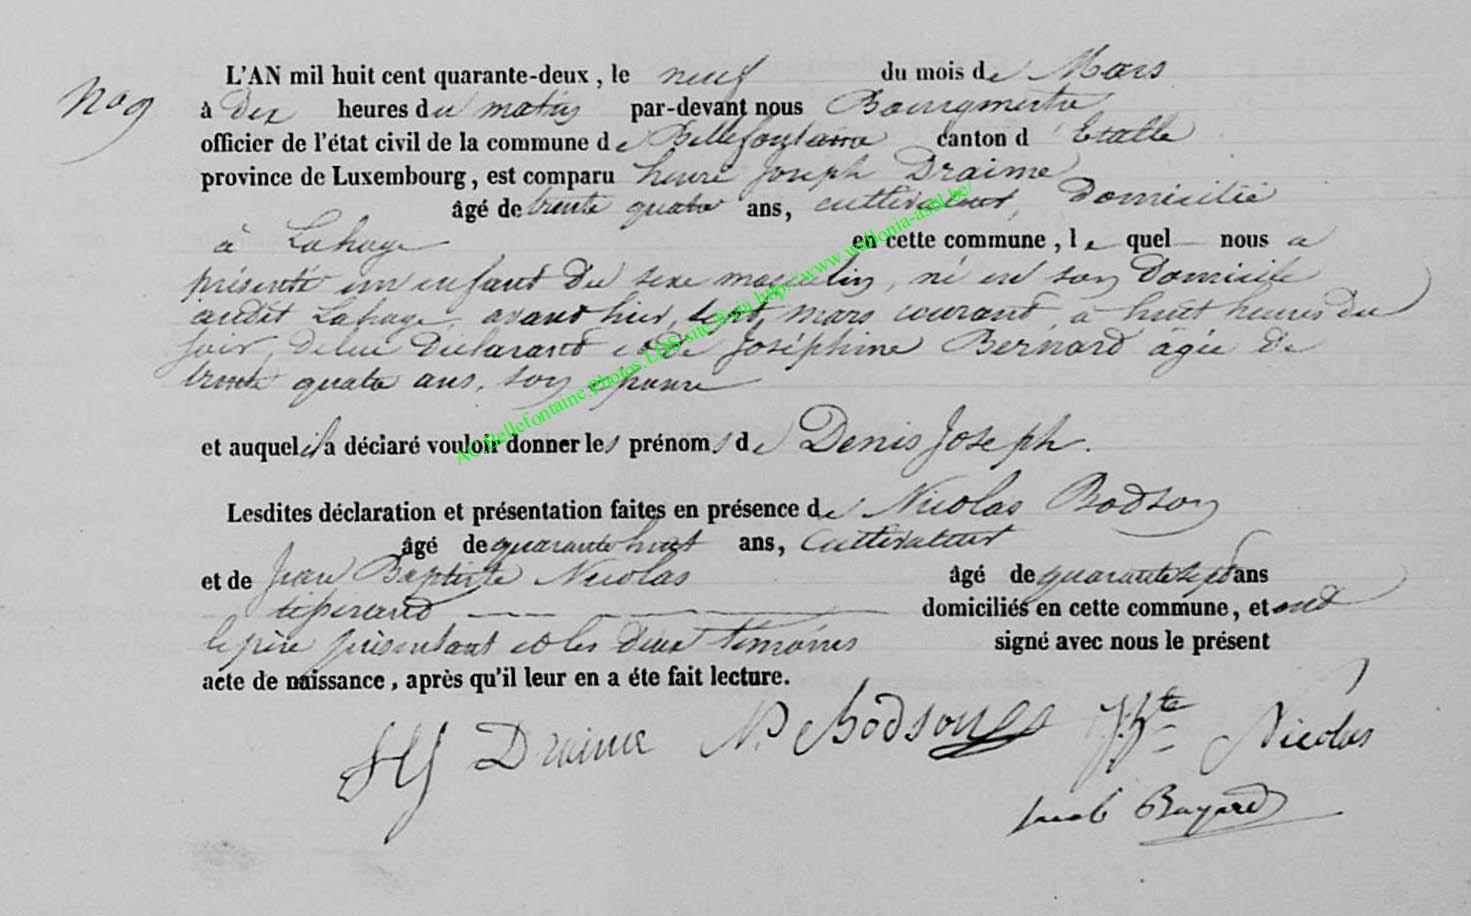 No 9
L'AN mil huit cent quarante-deux, le neuf du mois de Mars
à dix heures du matin par-devant nous Bourgmestre
officier de l'état civil de la commune de Bellefontaine canton d'Etalle
province de Luxembourg, est comparu henri Joseph Draime
âgé de trente quatre ans, cultivateur, domicilié
à Lahage en cette commune, lequel nous a
présenté un enfant du sexe masculin, né en son domicile
audit Lahage, avant hier, sept mars courant, à huit heures du
soir, de lui déclarant et de Joséphine Bernard agée de
trente quatre ans, son épouse
et auquel il a déclaré vouloir donner les prénoms de Denis Joseph.
Lesdites déclaration et présentation faites en présence de Nicolas Bodson
âgé de quarante huit ans, Cultivateur
et de Jean Baptiste Nicolas âgé de quarante sept ans
tisserand domiciliés en cette commune, et ont
le père présentant et les deux témoins signé avec nous le présent
acte de naissance, après qu'il leur en a éte fait lecture.
Draime N. Bodson J. Bte Nicolas
Jacob Bayard
AC.Bellefontaine.Photos.LDS-site-8via http://www.wallonia-asbl.be/